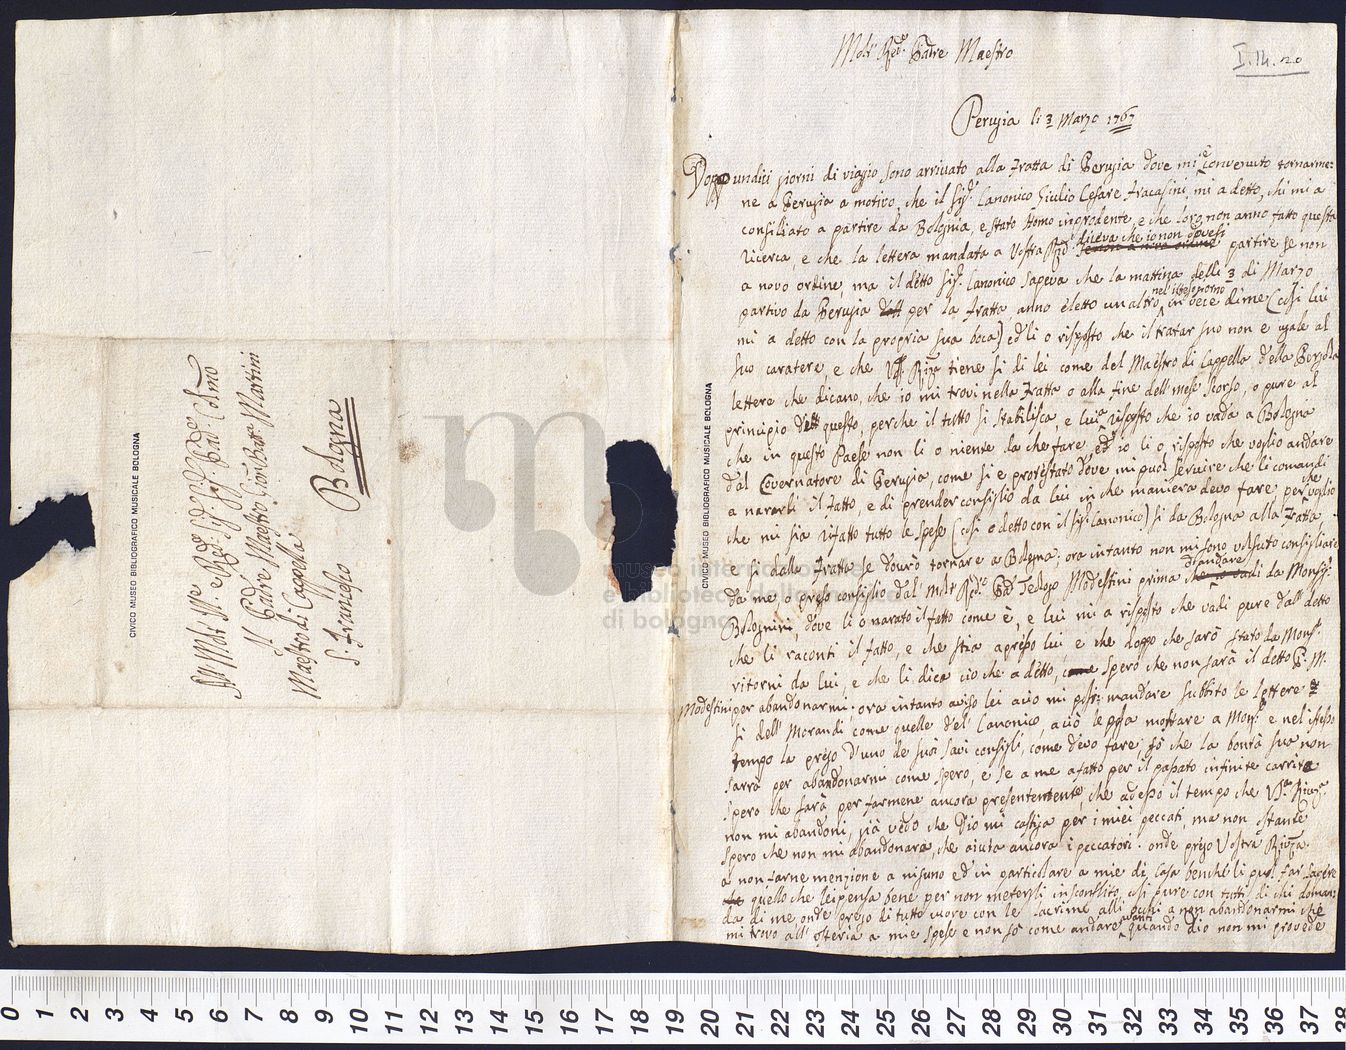 Al Molt Ill.e e Rev.do
Sig. Pad. Colmo
Il Padre Maestro Giovan Batta Martini
Maestro di Cappella
S. Francesco
Bologna
CIVICO MUSEO BIBLIOGRAFICO MUSICALE BOLOGNA
Molto Rev.do Padre Maestro
I.14.20
Perugia li 3 Marzo 1767
Doppo undici giorni di viaggio sono arrivato alla Fratta di Perugia dove mi è convenuto tornarme:
ne a Perugia a motivo, che il Sig. Canonico Giulio Cesare Fracasini, mi a detto, chi mi a
consiliato a partire da Bolognia, e stato Homo inprodente, e che loro non anno fatto questa
ricerca, e che la lettera mandata a Vostra diceva che io non dovesi partire se non
a novo ordine, ma il detto Sig. Canonico sapeva che la mattina delli 3 di Marzo
partivo da Perugia per la Fratta anno eletto un altro, nel istesso giorno in vece di me (cosi lui
mi a detto con la propria sua boca) ed li o risposto che il tratar suo non e uguale al
suo caratere, e che tiene si di lei come del Maestro di Cappella della
lettere che dicano, che io mi trovi nella Fratta o alla fine dell mese scorso, o pure al
principio questo, perche il tutto si stabilisca, e lui a risposto che io vada a Bolognia
che in questo Paese non li o niente da che fare, ed io li o risposto che voglio andare
dal Governatore di Perugia, come si e protestato dove mi puol servire che li comandi
a nararli il fatto, e di prender consiglio da lui in che maniera devo fare, perche voglio
che mi sia rifatto tutto le spese (cosi o detto con il Sig. Canonico) si da Bologna alla Fratta
e si dalla Fratta se dovrò tornare a Bologna; ora intanto non mi sono volsuto consigliare
da me o preso consiglio dal Molto Rd. Teologo Modestini prima d'andare da Monsig.
Bolognini, dove li o narato il fatto come è, e lui mi a risposto che vadi pure dall detto
che li raconti il fatto, e che stia apreso lui e che doppo che sarò stato da Mons.
ritorni da lui, e che li dica cio che a detto, spero che non sarà il detto P. M.
Modestini per abandonarmi; ora intanto aviso lei acio mi possi mandare subbito le lettere
si dell Morandi come quelle del Canonico, aciò le possa mostrare a Mons. e nel istesso
tempo la prego d'uno de suoi savi consigli, come devo fare, sò che la bontà sua non
sarrà per abandonarmi come spero, e se a me a fatto per il passato infinite carrità
spero che sarà per farmene ancora presentemente, che adesso il tempo che
non mi abandoni, già vedo che Dio mi castiga per i miei peccati, ma non stante
spero che non mi abandonarà, che aiuta ancora i peccatori. onde prego Vostra
a non farne menzione a nisuno ed in particolare a mie di casa benche li puol far sapere
quello che lei pensa bene per non metersli in sconsilito, cosi pure con tutti di chi doman:
da di me onde prego di tutto cuore con le lacrime alli ochi a non abandonarmi che
mi trovo all'osteria a mie spese e non sò come andare avanti quando Dio non mi provede
CIVICO MUSEO BIBLIOGRAFICO MUSICALE BOLOGNA
museo internazionale
e biblioteca della musica
di bologna
0 1 2 3 4 5 6 7 8 9 10 11 12 13 14 15 16 17 18 19 20 21 22 23 24 25 26 27 28 29 30 31 32 33 34 35 36 37 38